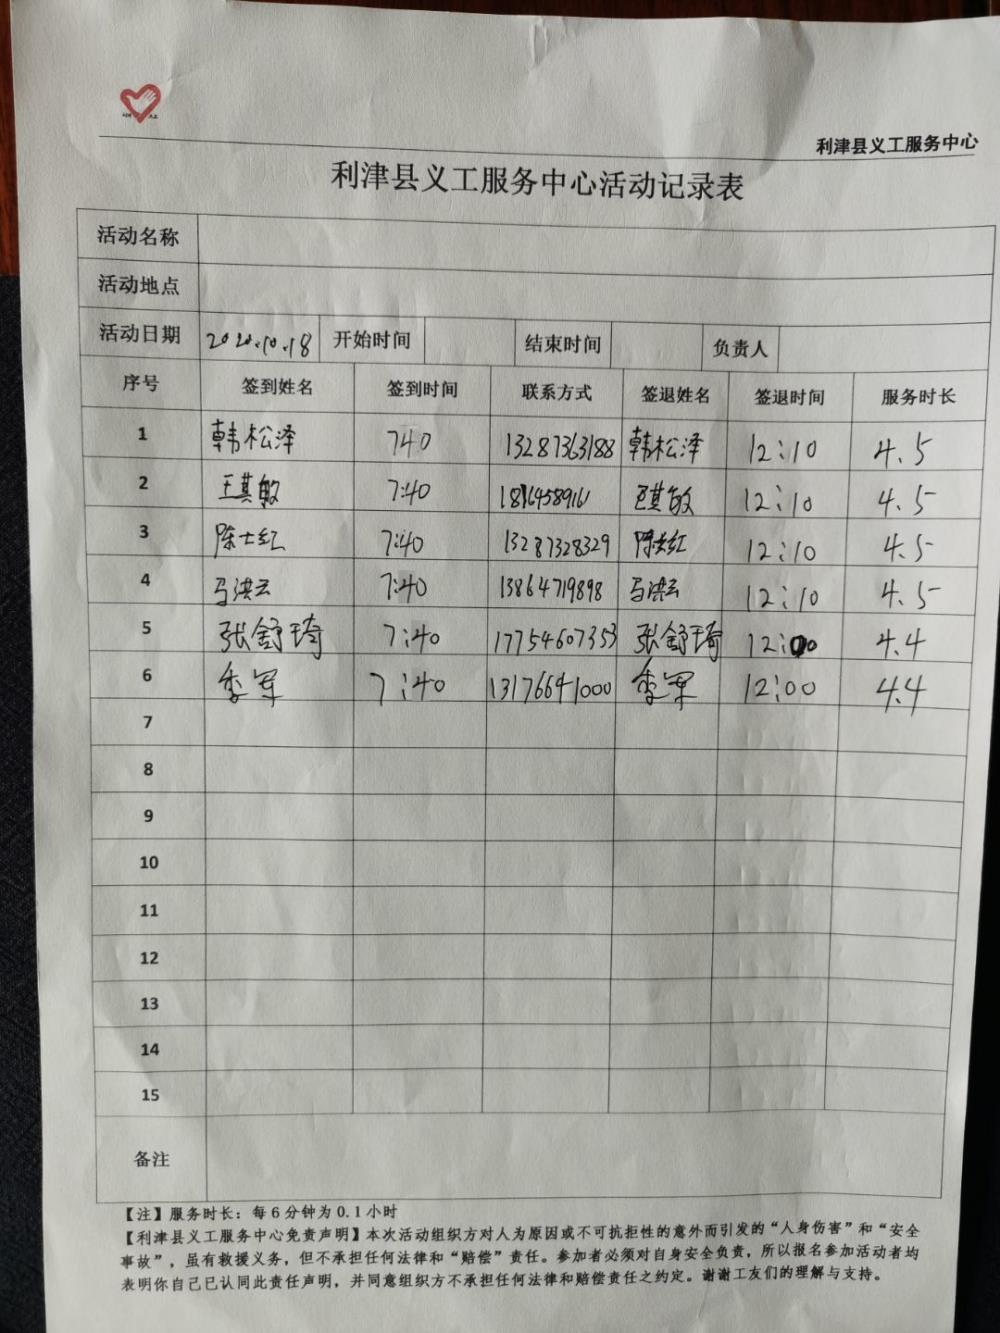 利津县义工服务中心
利津县义工服务中心活动记录表
活动名称
活动地点
活动日期 2020.10.18 开始时间 结束时间 负责人
序号 签到姓名 签到时间 联系方式 签退姓名 签退时间 服务时长
1 韩松泽 740 13287363188 韩松泽 12:10 4.5
2 王其敏 7:40 王其敏 12:10 4.5
3 陈士红 7:40 13287328329 陈士红 12:10 4.5
4 马洪云 7:40 13864719898 马洪云 12:10 4.5
5 张舒琦 7:40 17754607353 张舒琦 12:00 4.4
6 李军 7:40 13176641000 李军 12:00 4.4
7
8
9
10
11
12
13
14
15
备注
【注】服务时长：每6分钟为0.1小时
【利津县义工服务中心免责声明】本次活动组织方对人为原因或不可抗拒性的意外而引发的“人身伤害”和“安全
事故”，虽有救援义务，但不承担任何法律和“赔偿”责任。参加者必须对自身安全负责，所以报名参加活动者均
表明你自己已认同此责任声明，并同意组织方不承担任何法律和赔偿责任之约定。谢谢工友们的理解与支持。